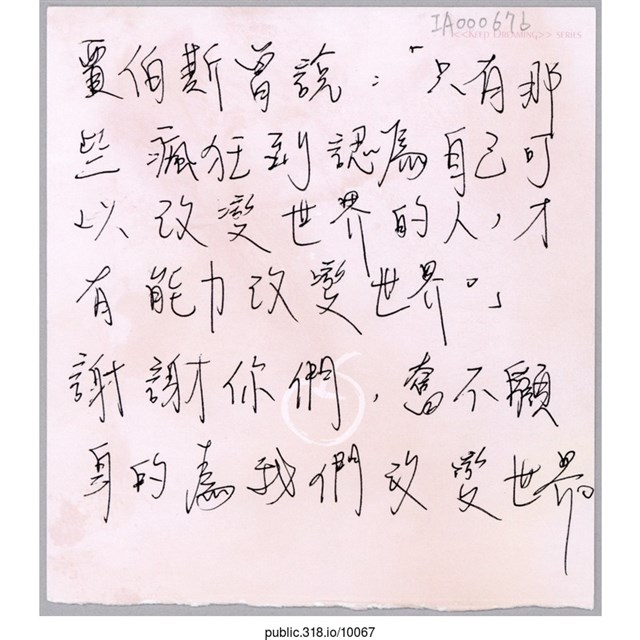 IA000676
<<KEEP DREAMING>> SERIES
賈伯斯曾說：「只有那
些瘋狂到認為自己可
以改變世界的人，才
有能力改變世界。」
謝謝你們，奮不顧
身的為我們改變世界。
public.318.io/10067